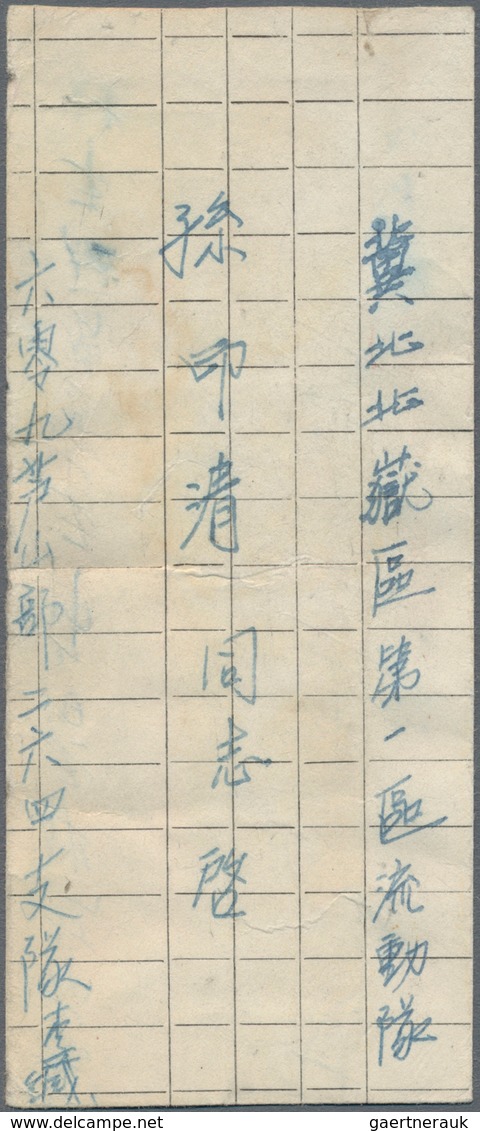 冀北北嶽區第一區流動隊
孫印清同志啓
六零九芸山部二六四支隊 緘
delcampe.net
gaertnerauk